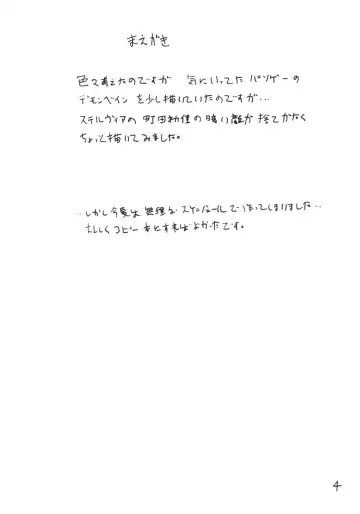 まえがき
色々考えたのですが 気にいってた パソゲーの
デモンベイン を少し描いていたのですが…
ステルヴィアの 町田初佳の暗い顔が 捨てがたく
ちょっと描いてみました。
‥しかし今夏は 無理な スケジュールで 作ってしまいました‥
大人しく コピー本と すればよかったです。
4